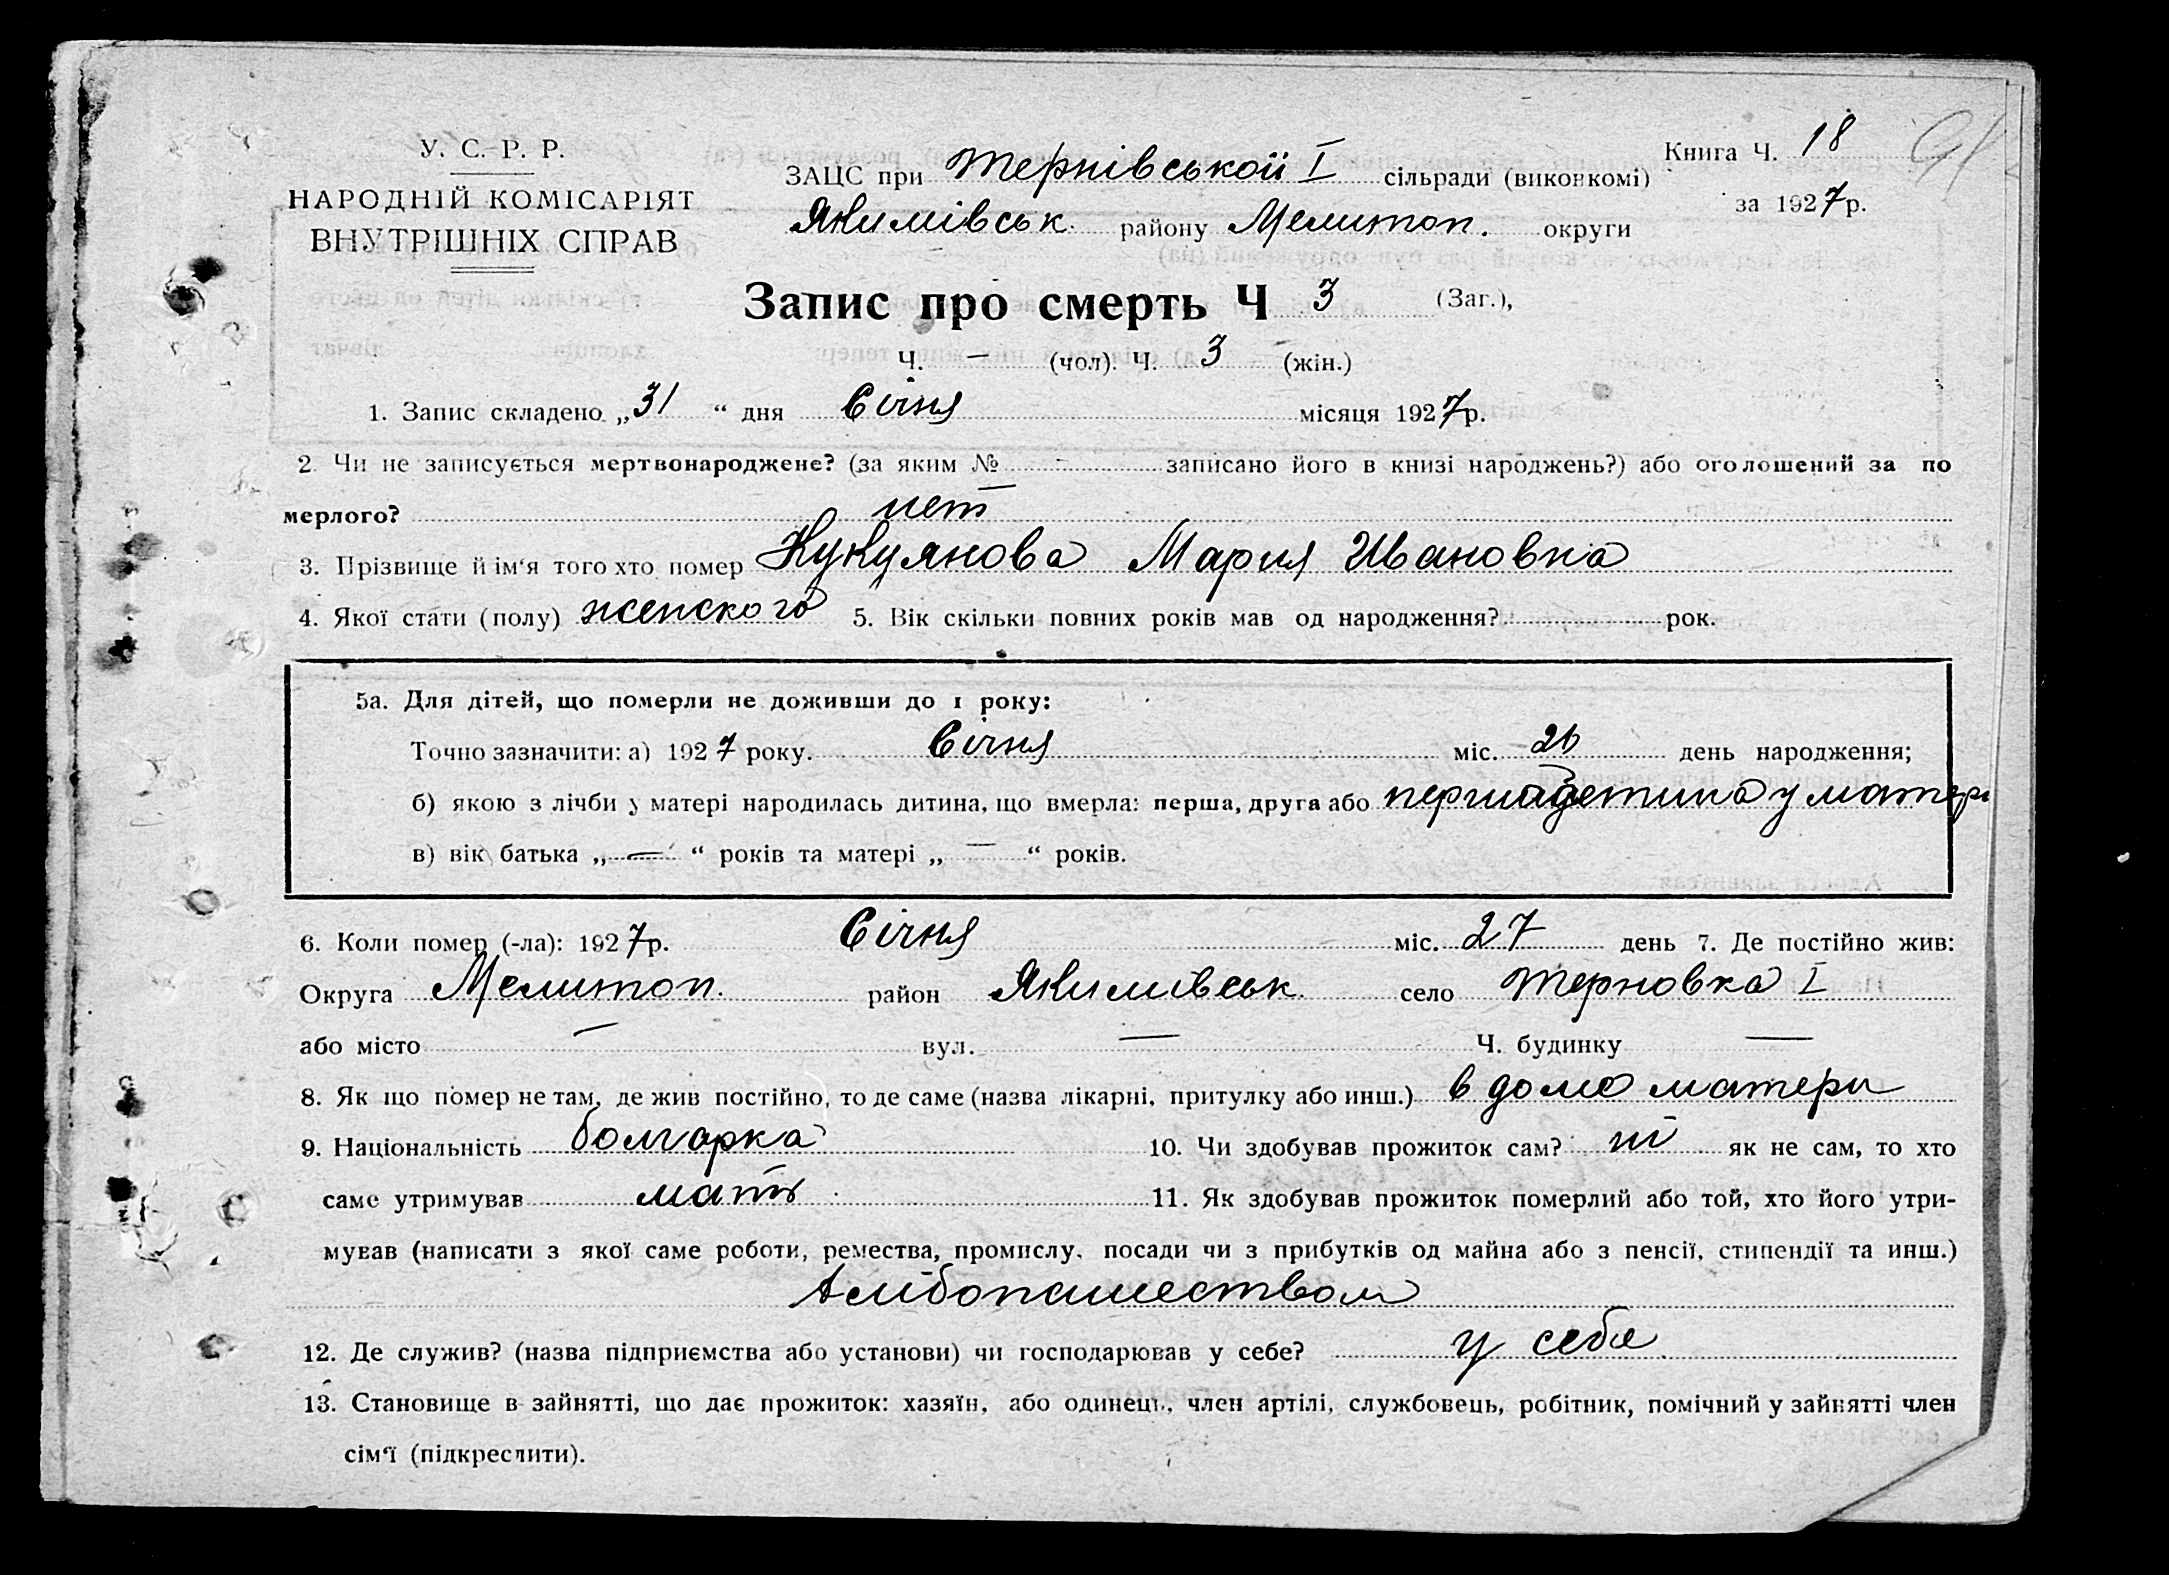 У. С. Р. Р.
НАРОДНІЙ КОМІСАРІЯТ
ВНУТРІШНІХ СПРАВ
ЗАЦС при Тернівській І сільради (виконкомі)
Якимівськ. району Мелитоп. округи
Книга Ч. 18
за 1927 р.
Запис про смерть Ч 3 (Заг.),
Ч. — (чол). Ч. 3 (жін.)
1. Запис складено „31“ дня Січня місяця 1927 р.
2. Чи не записується мертвонароджене? (за яким № - записано його в книзі народжень?) або оголошений за по
мерлого? нет
3. Прізвище й ім‘я того хто помер Кукулянова Мария Ивановна
4. Якої стати (полу) женского 5. Вік скільки повних років мав од народження? рок.
5а. Для дітей, що померли не доживши до 1 року:
Точно зазначити: а) 1927 року. Січня міс. день народження;
б) якою з лічби у матері народилась дитина, що вмерла: перша, друга або у матери
в) вік батька „—“ років та матері „—“ років.
6. Коли помер (-ла): 1927 р. Січня міс. 27 день 7. Де постійно жив:
Округа Мелитоп. район Якимівськ. село Терновка І
або місто — вул. — Ч. будинку —
8. Як що помер не там, де жив постійно, то де саме (назва лікарні, притулку або инш.) в доме матери
9. Національність болгарка 10. Чи здобував прожиток сам? ні як не сам, то хто
саме утримував мать 11. Як здобував прожиток померлий або той, хто його утри-
мував (написати з якої саме роботи, ремества, промислу, посади чи з прибутків од майна або з пенсії, стипендії та инш.)
12. Де служив? (назва підприємства або установи) чи господарював у себе? у себе
13. Становище в зайнятті, що дає прожиток: хазяїн, або одинець, член артілі, службовець, робітник, помічний у зайнятті член
сім‘ї (підкреслити).